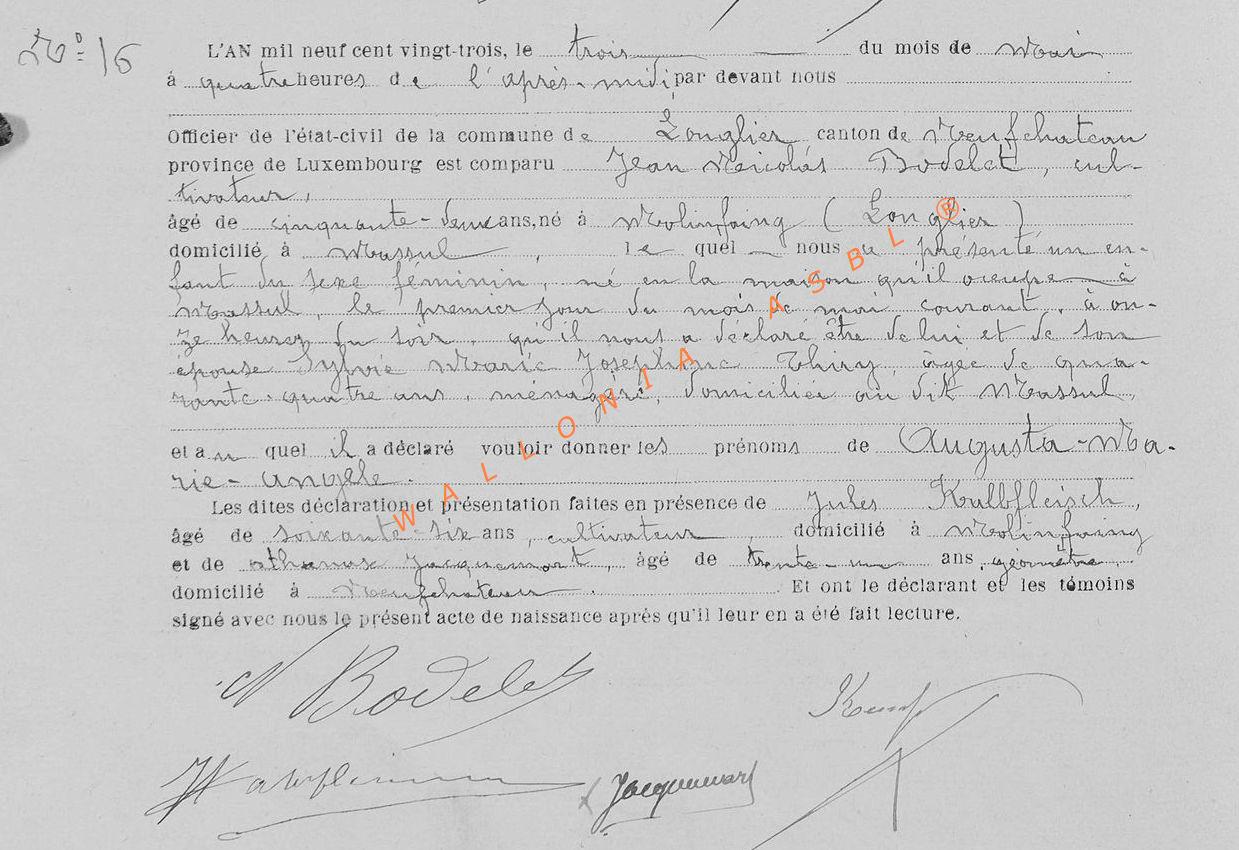 N° 16
L'AN mil neuf cent vingt-trois, le trois du mois de Mai
à quatre heures de l'après-midi, par devant nous
Officier de l'état-civil de la commune de Longlier canton de Neufchateau
province de Luxembourg est comparu Jean Nicolas Bodelet, cul-
tivateur,
âgé de cinquante-deux ans, né à Molinfaing (Longlier)
domicilié à Massul, lequel nous a présenté un en-
fant du sexe féminin, né en la maison qu'il occupe à
Massul, le premier jour du mois de mai courant, à on-
ze heures du soir, qu'il nous a déclaré être de lui et de son
épouse Sylvie Marie Josephine Thiry, âgée de qua-
rante-quatre ans, ménagère, domiciliée au dit Massul,
et au quel il a déclaré vouloir donner les prénoms de Augusta-Ma-
rie-Angèle.
Les dites déclaration et présentation faites en présence de Jules Kalbfleisch,
âgé de soixante-six ans, cultivateur, domicilié à Molinfaing
et de Jacquemart, âgé de trente-un ans, géomètre,
domicilié à Neufchateau. Et ont le déclarant et les témoins
signé avec nous le présent acte de naissance après qu'il leur en a été fait lecture.
N Bodelet
Jacquemart
WALLONIA ASBL ®